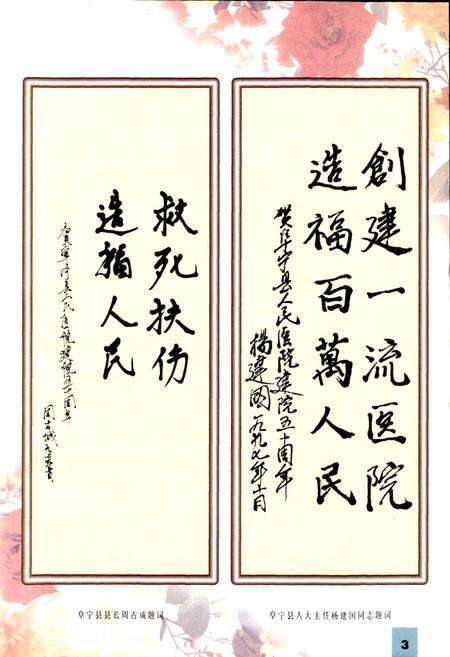 創建一流医院
造福百萬人民
贺阜宁县人民医院建院五十周年
楊建國一九九七年十月
救死扶伤
造福人民
贺阜宁县人民医院建院五十周年
周古城
阜宁县县长周古成题词
阜宁县人大主任杨建国同志题词
3